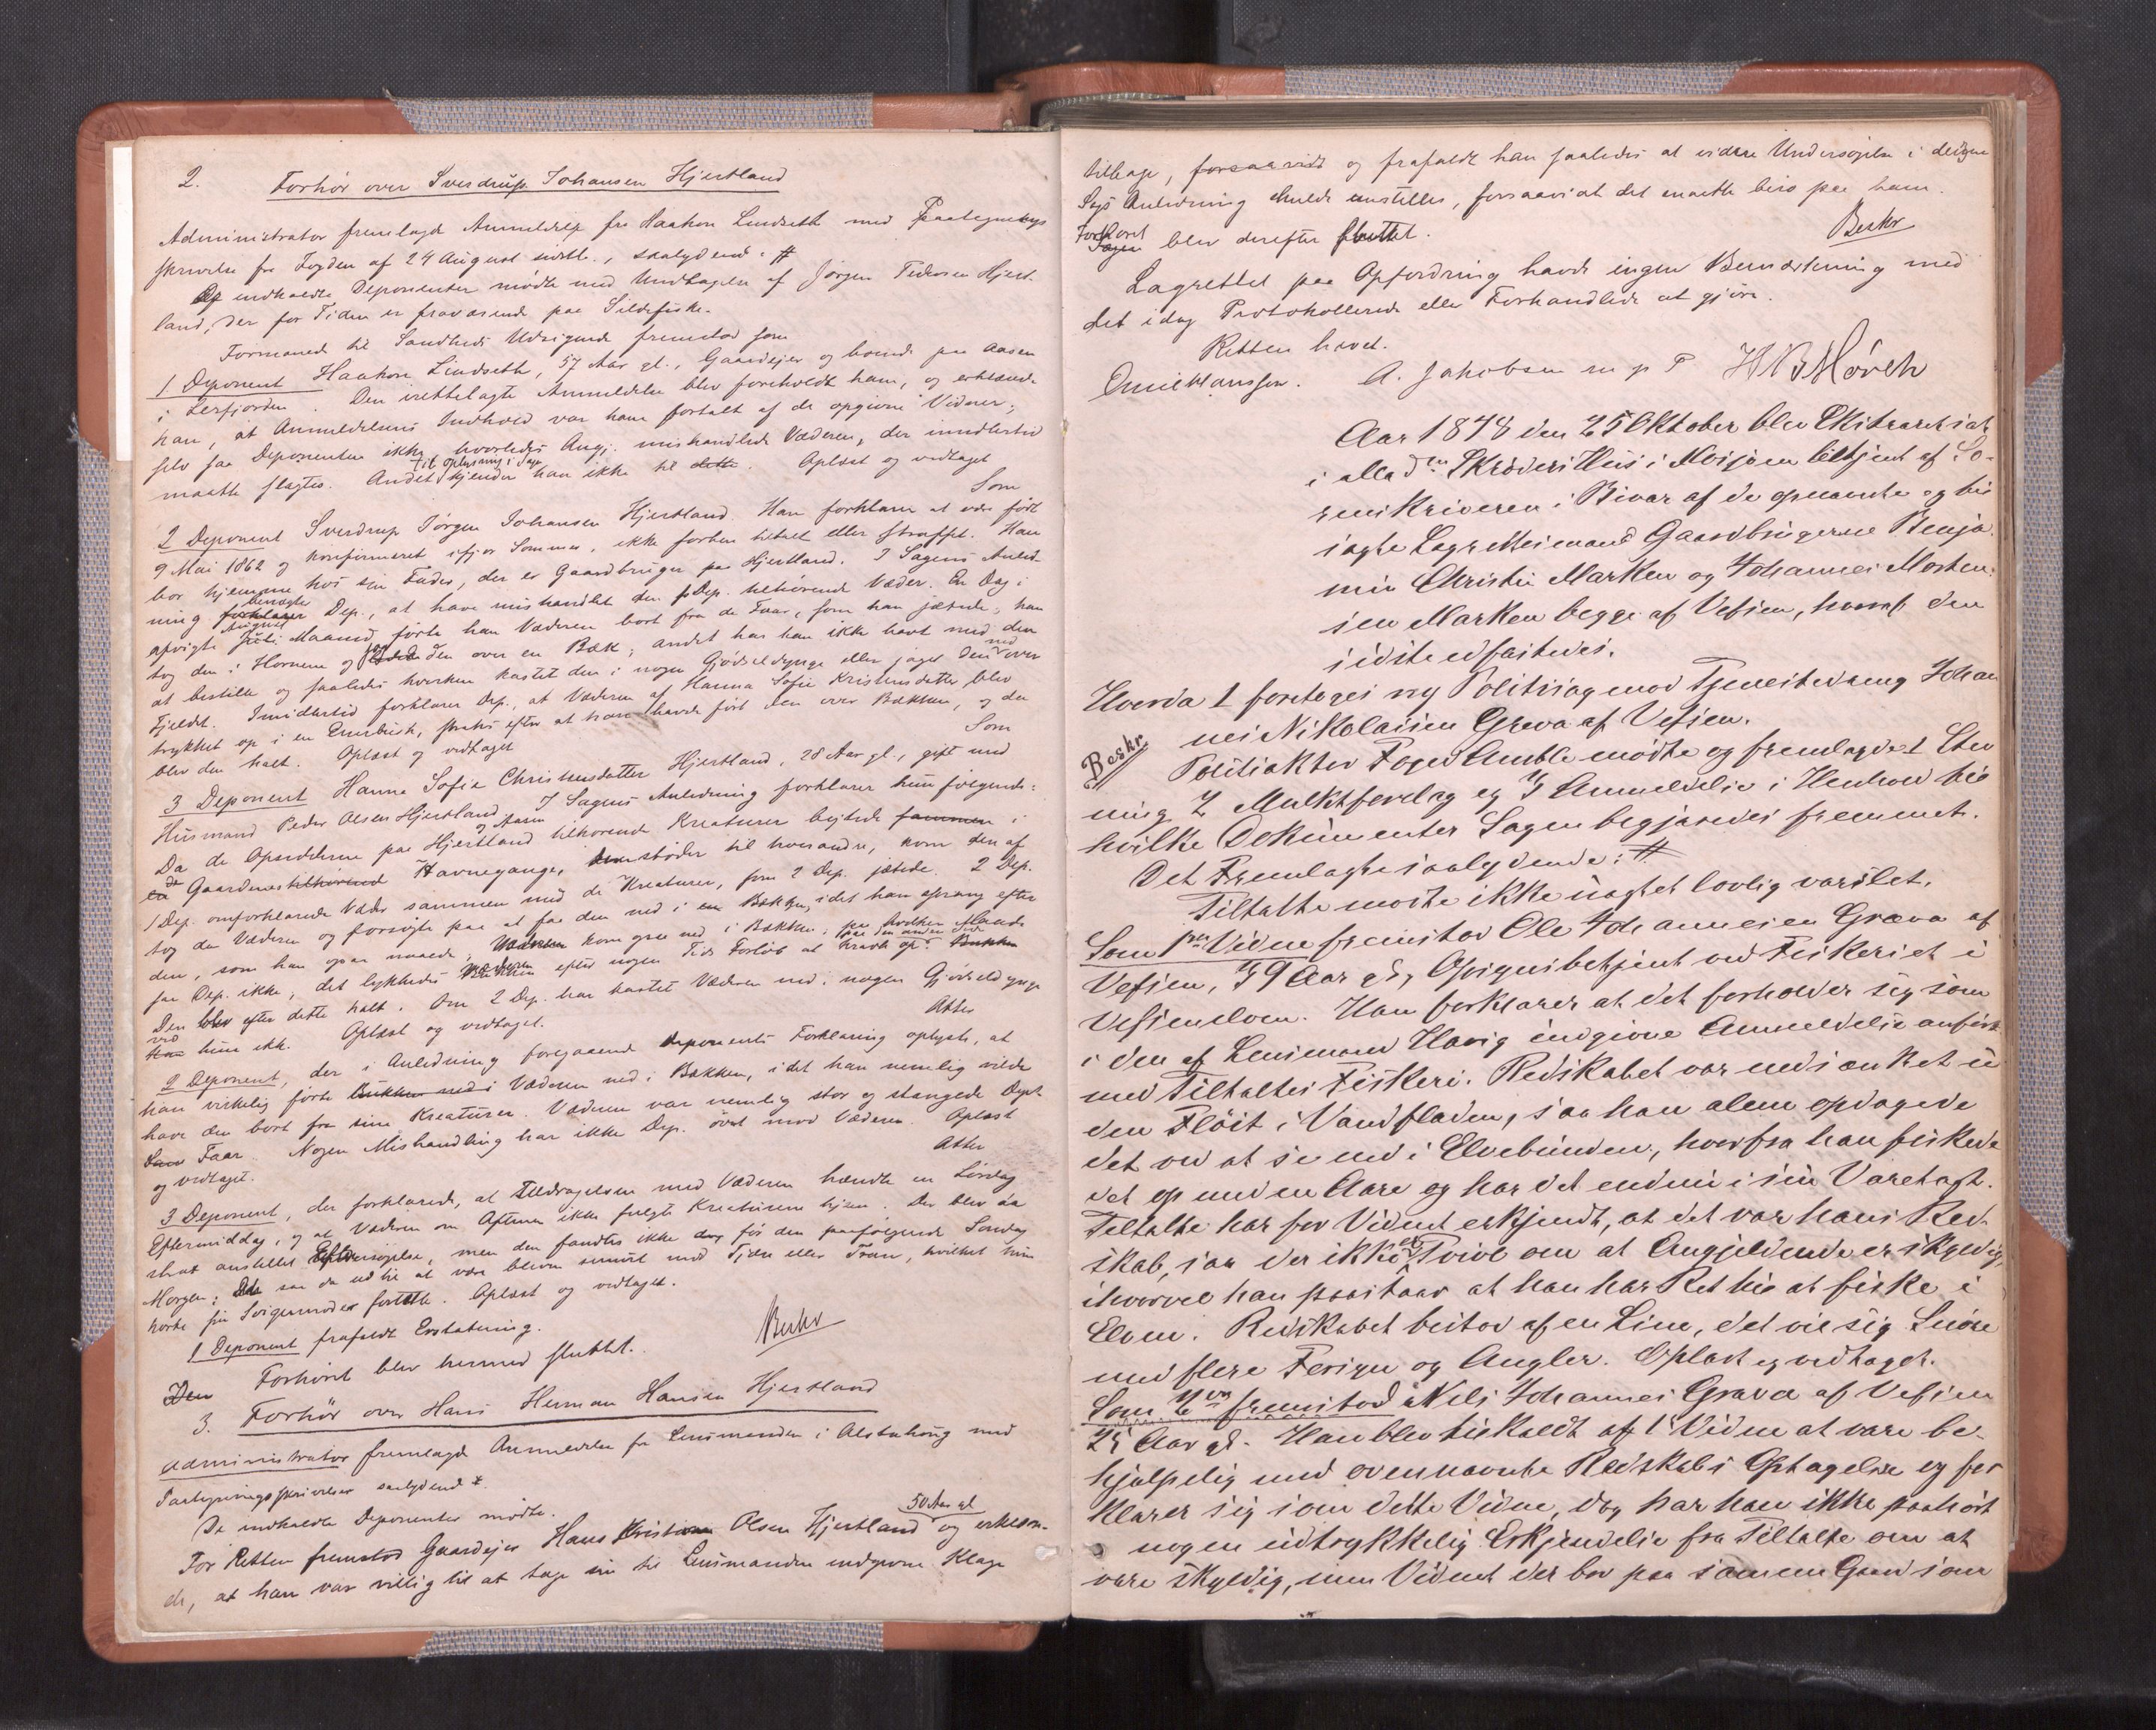 2. Forhör over Sverdrup Johansen Hjertland
Administrator fremlagde Anmeldelse fra Haakon Lindseth med Paategnings
skrivelse fra Fogden af 24 August sidstl., saalydende: #
De indkaldte Deponenter mødte med Undtagelse af Jørgen Pedersen Hjert-
land, der for Tiden er fraværende paa Sildefiske.
Formanede til Sandheds Udsigende fremstod som
1 Deponent Haakon Lindseth, 57 Aar gl., Gaardejer og boende paa Aasen
i Lerfjorden. Den irettelagte Anmeldelse blev foreholdt ham, og erklærede
han, at Anmeldelsens Indhold var ham fortalt af de opgivne Vidner;
selv saa Deponenten ikke hvorledes Angj. mishandlede Væderen, der imidlertid
maatte slagtes. Andet til Oplysning i Sagen kjender han ikke til dette. Oplæst og vedtaget
Som
2 Deponent Sverdrup Jørgen Johansen Hjertland. Han forklarer at være født
9 Mai 1862 og konfirmeret ifjor Sommer, ikke forhen tiltalt eller straffet. Han
bor hjemme hos sin Fader, der er Gaardbruger paa Hjertland. I Sagens Anled-
ning forklarer benægter Dep., at have mishandlet den 1 Dep. tilhørende Væder. En Dag i
afvigte Juli August Maaned førte han Væderen bort fra de Faar, som han jætede; han
tog den i Hornene og den over en Bæk; andet har han ikke havt med den
at bestille og saaledes hverken kastet den i nogen Gjødseldynge eller jaget den ned over
Fjeldet. Imidlertid forklarer Dep., at Væderen af Hanna Sofie Kristensdatter blev
trykket op i en Enerbusk, straks efter at han havde ført den over Bækken, og da
blev den halt. Oplæst og vedtaget
Som
3 Deponent Hanna Sofie Christensdatter Hjertland, 28 Aar gl., gift med
Husmand Peder Olsen Hjertland. I Sagens Anledning forklarer hun følgende:
Da de Opsidderne paa Hjertland og Aasen tilhørende Kreaturer bejtede sammen i
en de Gaardenes tilhørende Havnegange, støder til hverandre, kom den af
1 Dep. omforklarede Væder sammen med de Kreaturer, som 2 Dep. jætede. 2 Dep.
tog da Væderen og forsøgte paa at faa den ned i en Bækken, idet han sprang efter
den, som han opaa naaede; Væderen kom saa ned i Bækken; paa hvilken Maade
saa Dep. ikke; det lykkedes Væderen efter nogen Tids Forløb at kravle op paa en anden Side. Bukken
Den blev efter dette halt. Om 2 Dep. har kastet Væderen ned i nogen Gjødseldynge
ved Han hun ikke. Oplæst og vedtaget.
Atter
2 Deponent, der i Anledning foregaaende Deponents Forklaring oplyste, at
han virkelig førte Bukken ned i Væderen ned i Bækken, idet han nemlig vilde
have den bort fra sine Kreaturer. Væderen var nemlig stor og stangede Dept.
Faar. Nogen Mishandling har ikke Dep. øvet mod Væderen. Oplæst
og vedtaget.
Atter
3 Deponent, der forklarede, at Tildragelsen med Væderen hændte en Lørdag
Eftermiddag, og at Væderen om Aftenen ikke fulgte Kreaturene hjem. Der blev da
strax anstillet Eftersøgelse, men den fandtes ikke før den paafølgende Søndag
Morgen; saa da ud til at være bleven smurt med Tjære eller Tran, hvilket hun
hørte sin Svigermoder fortalte. Oplæst og vedtaget.
1 Deponent frafaldt Erstatning.
Den Forhöret blev hermed sluttet.
Beskr
3. Forhör over Hans Herman Hansen Hjertland
Administrator fremlagde Anmeldelse fra Lensmanden i Alstahoug med
Paategningsskrivelser saalydende #.
De indkaldte Deponenter mødte.
For Retten fremstod Gaardejer Hans Kristian Olsen Hjertland 50 Aar gl og erklære-
de, at han var villig til at tage sin til Lensmanden indgivne Klage
tilbage, forsaavidt og frafaldt han saaledes at videre Undersøgelse i denne
Sags Anledning skulde anstilles, forsaavidt det maatte bero paa ham.
Sagen Forhøret blev derefter sluttet.
Beskr
Lagrettet paa Opfordring havde ingen Bemærkning med
det idag Protokollerede eller Forhandlede at gjøre.
Retten hævet.
A. Jakobsen m p P HNB Mörch
Aar 1878 den 25 Oktober blev Ekstraret sat
i Skröders Hus i Mosjøen betjent af So-
renskriveren i Bivær af de opnævnte og til
sagte Lagrettesmænd Gaardbrugerne Benja-
min Christie Marken og Johannes Morten-
sen Marken begge af Vefsen, hvoraf den
sidste edfæstedes.
Hvorda 1 foretoges ny Politisag mod Tjenestedreng Johan
nes Nikolaisen Græva af Vefsen.
Beskr.
Politiaktor Foged Amble mødte og fremlagde 1 Stev
ning 2 Mulktforelæg og 3 Anmeldelse i Henhold til
hvilke Dokumenter Sagen begjæredes fremmet.
Det Fremlagte saalydende: #
Tiltalte mødte ikke uagtet lovlig varslet.
Som 1ste Vidne fremstod Ole Johannesen Græva af
Vefsen, 39 Aar gl, Opsynsbetjent ved Fiskeriet i
Vefsenelven. Han forklarer at det forholder sig som
i den af Lensmand Havig indgivne Anmeldelse anført
med Tiltaltes Fiskeri. Redskabet var nedsænket u
den Fløit i Vandfladen, saa han alene opdagede
det ved at se ned i Elvebunden, hvorfra han fiskede
det op med en Aare og har det endnu i sin Varetægt.
Tiltalte har for Vidnet erkjendt, at det var hans Red-
skab, saa der ikke er Tvivl om at Angjeldende er skyldig,
ihvorvel han paastaar at han har Ret til at fiske i
Elven. Redskabet bestod af en Line, det vil sig Snöre
med flere Fersyn og Angler. Oplæst og vedtaget.
Som 2det fremstod Nils Johannes Græva af Vefsen
25 Aar gl. Han blev tilkaldt af 1 Vidne at være be-
hjælpelig med ovennævnte Redskabs Optagelse og for
klarer sig som dette Vidne, dog har han ikke paahørt
nogen udtrykkelig Erkjendelse fra Tiltalte om at
være skyldig, men Vidnet der bor paa samme Gaard som